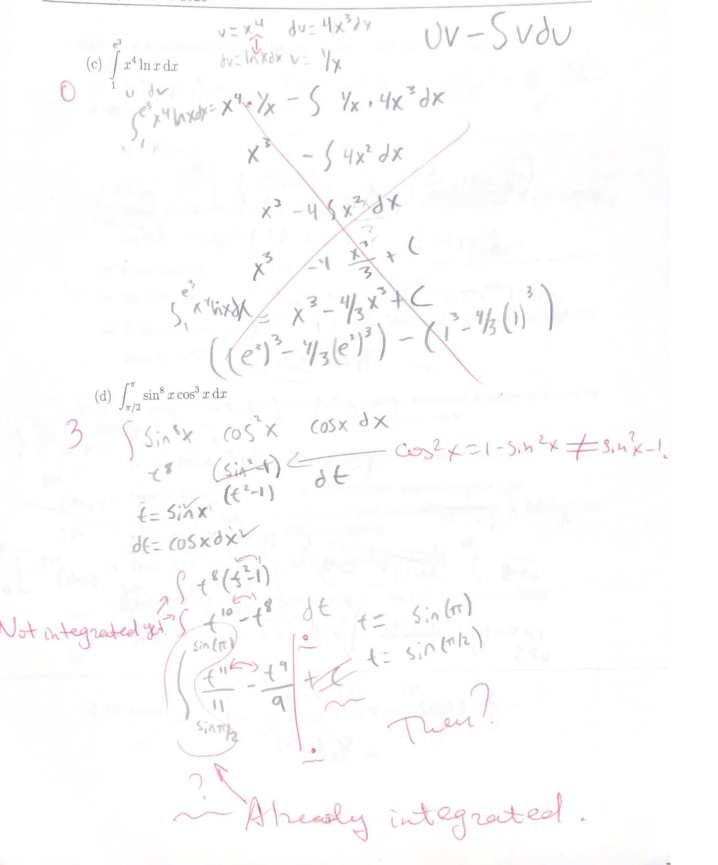 v = x⁴ du = 4x³dx uv - ∫vdu
dv = lnxdx v = 1/x
(c) ∫₁^{e³} x⁴ ln x dx
u dv
0
∫₁^{e³} x⁴ lnxdx = x⁴ · 1/x - ∫ 1/x · 4x³ dx
x³ - ∫ 4x² dx
x³ - 4 ∫ x² dx
x³ - 4 x³/3 + C
∫₁^{e³} x⁴ lnxdx = x³ - 4/3 x³ + C
((e³)³ - 4/3(e³)³) - (1³ - 4/3(1)³)
(d) ∫_{π/2}^{π} sin⁸ x cos³ x dx
3 ∫ sin⁸x cos²x cosx dx
t⁸ (sin²-1) dt cos²x = 1 - sin²x ≠ sin²x - 1.
(t²-1)
t = sinx
dt = cosxdx
∫ t⁸(t²-1)
Not integrated yet → ∫ t¹⁰ - t⁸ dt t = sin(π)
t = sin(π/2)
∫_{sin π/2}^{sin(π)} t¹¹/11 - t⁹/9 + C
Then?
?
Already integrated.